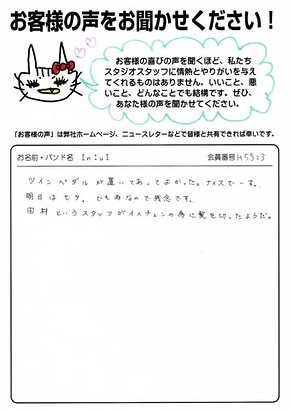 お客様の声をお聞かせください！
お客様の喜びの声を聞くほど、私たち
スタジオスタッフに情熱とやりがいを与え
てくれるものはありません。いいこと、悪
いこと、どんなことでも結構です。ぜひ、
あなた様の声を聞かせてください。
「お客様の声」は弊社ホームページ、ニュースレターなどで皆様と共有できれば幸いです。
お名前・バンド名 In:ul 会員番号 H5523
ツインペダルが置いてあってよかった。ナイスでーす。
明日は七夕。でも雨なので残念です。
田村というスタッフがイメチェンの為に髪を切ったようだ。